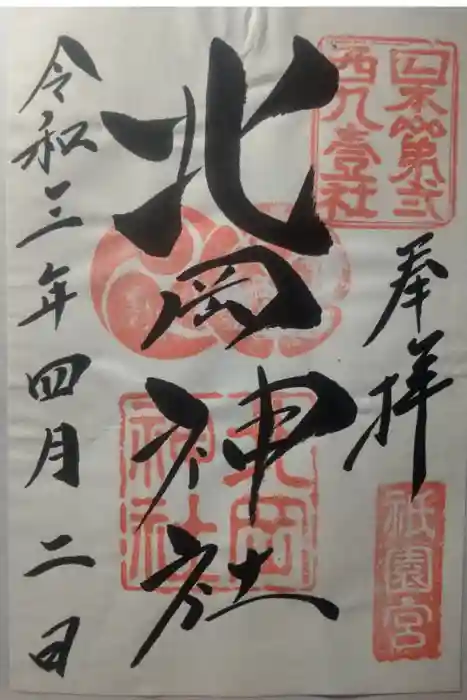 四木第弐
西九壹社
奉拝
祇園宮
北岡神社
北岡
神社
令和三年四月二日